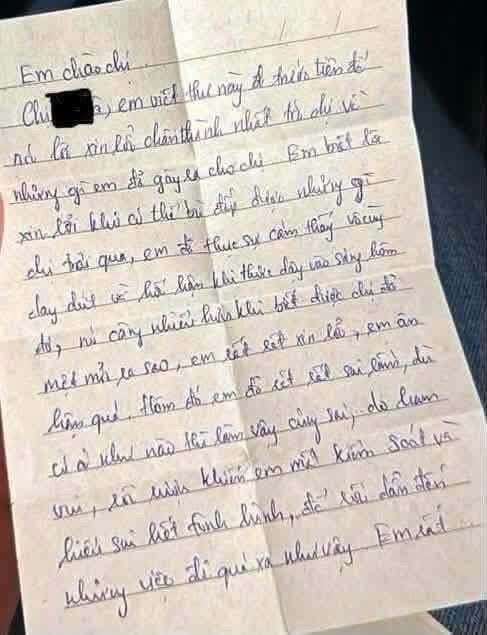 Em chào chị
Chị a, em viết thư này để trước tiên để
nói lời xin lỗi chân thành nhất tới chị về
những gì em đã gây ra cho chị. Em biết là
xin lỗi khó có thể bù đắp được những gì
chị trải qua, em đã thực sự cảm thấy vô cùng
day dứt và hối hận khi thức dậy vào sáng hôm
đó, nó càng nhiều hơn khi biết được chị đã
mệt mỏi ra sao, em rất rất xin lỗi, em ân
hận quá. Hôm đó em đã rất rất sai lầm, dù
có ở như nào thì làm vậy cũng sai, do ham
vui, rồi khiến em mất kiểm soát và
hiểu sai hết tình hình, để rồi dẫn đến
những việc đi quá xa như vậy. Em rất